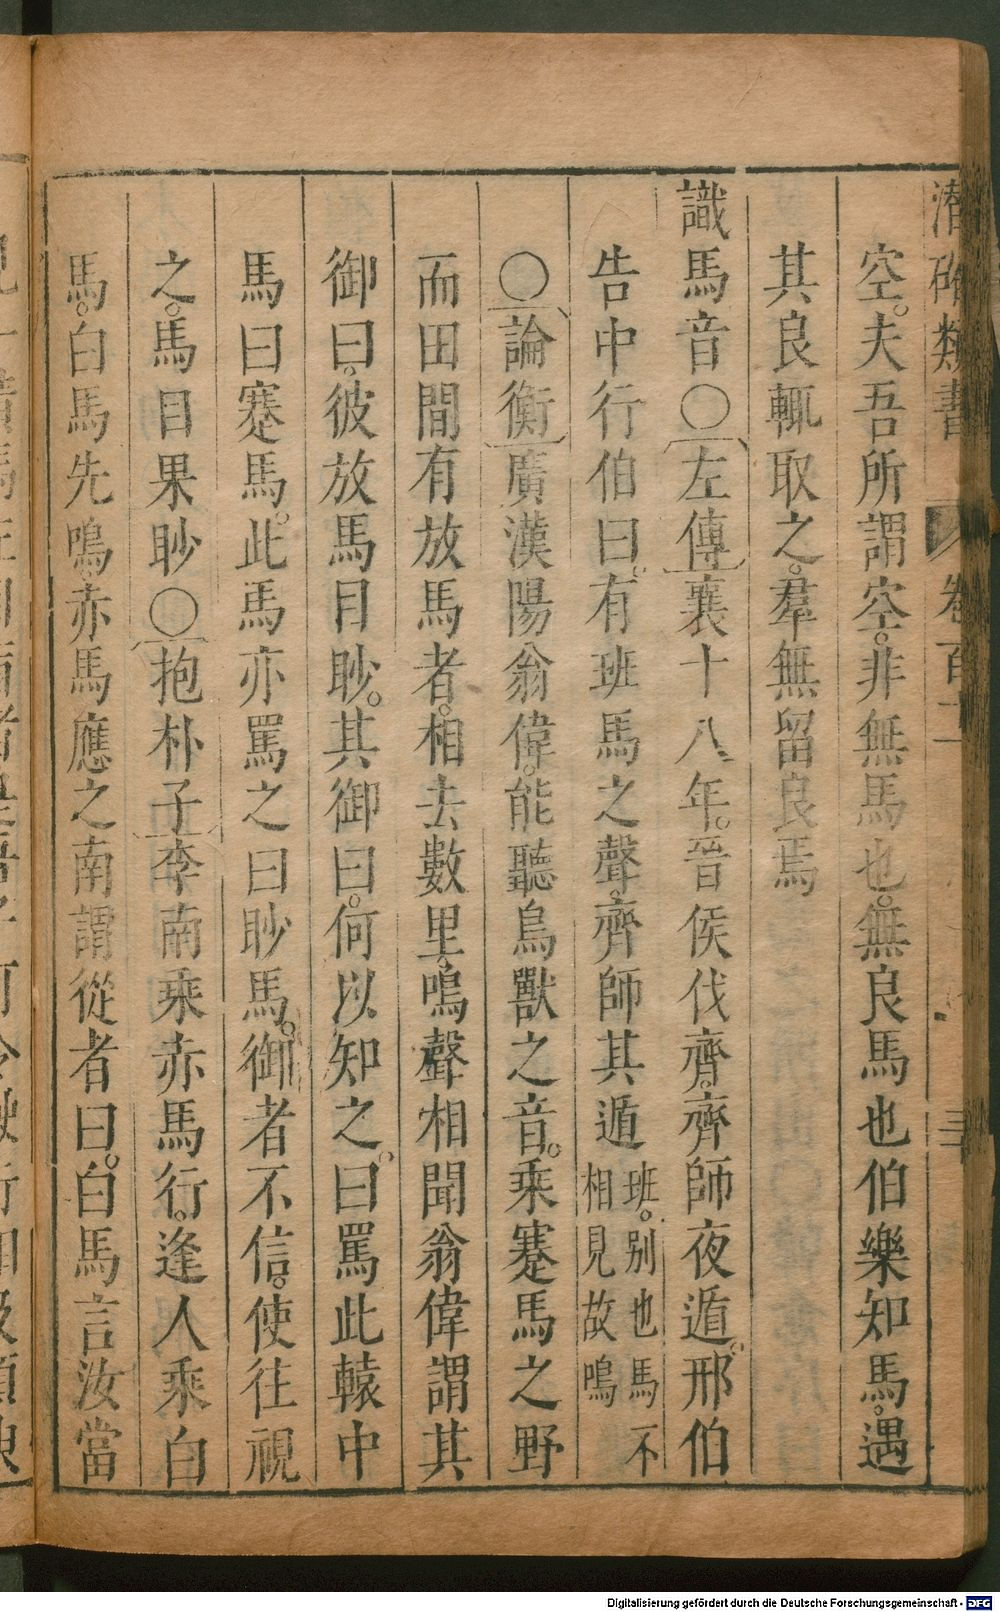 潛確類書 卷百十二
空。夫吾所謂空。非無馬也。無良馬也伯樂知馬。遇
其良輒取之。羣無留良焉
識馬音○左傳襄十八年。晉侯伐齊。齊師夜遁。邢伯
告中行伯曰。有班馬之聲。齊師其遁班。別也馬不相見故鳴
○論衡廣漢陽翁偉。能聽鳥獸之音。乘蹇馬之野
而田間有放馬者。相去數里。鳴聲相聞翁偉謂其
御曰。彼放馬目眇。其御曰。何以知之。曰罵此轅中
馬曰蹇馬。此馬亦罵之曰眇馬。御者不信。使往視
之。馬目果眇○抱朴子李南乘赤馬行。逢人乘白
馬。白馬先鳴。赤馬應之南謂從者曰。白馬言汝當
Digitalisierung gefördert durch die Deutsche Forschungsgemeinschaft - DFG